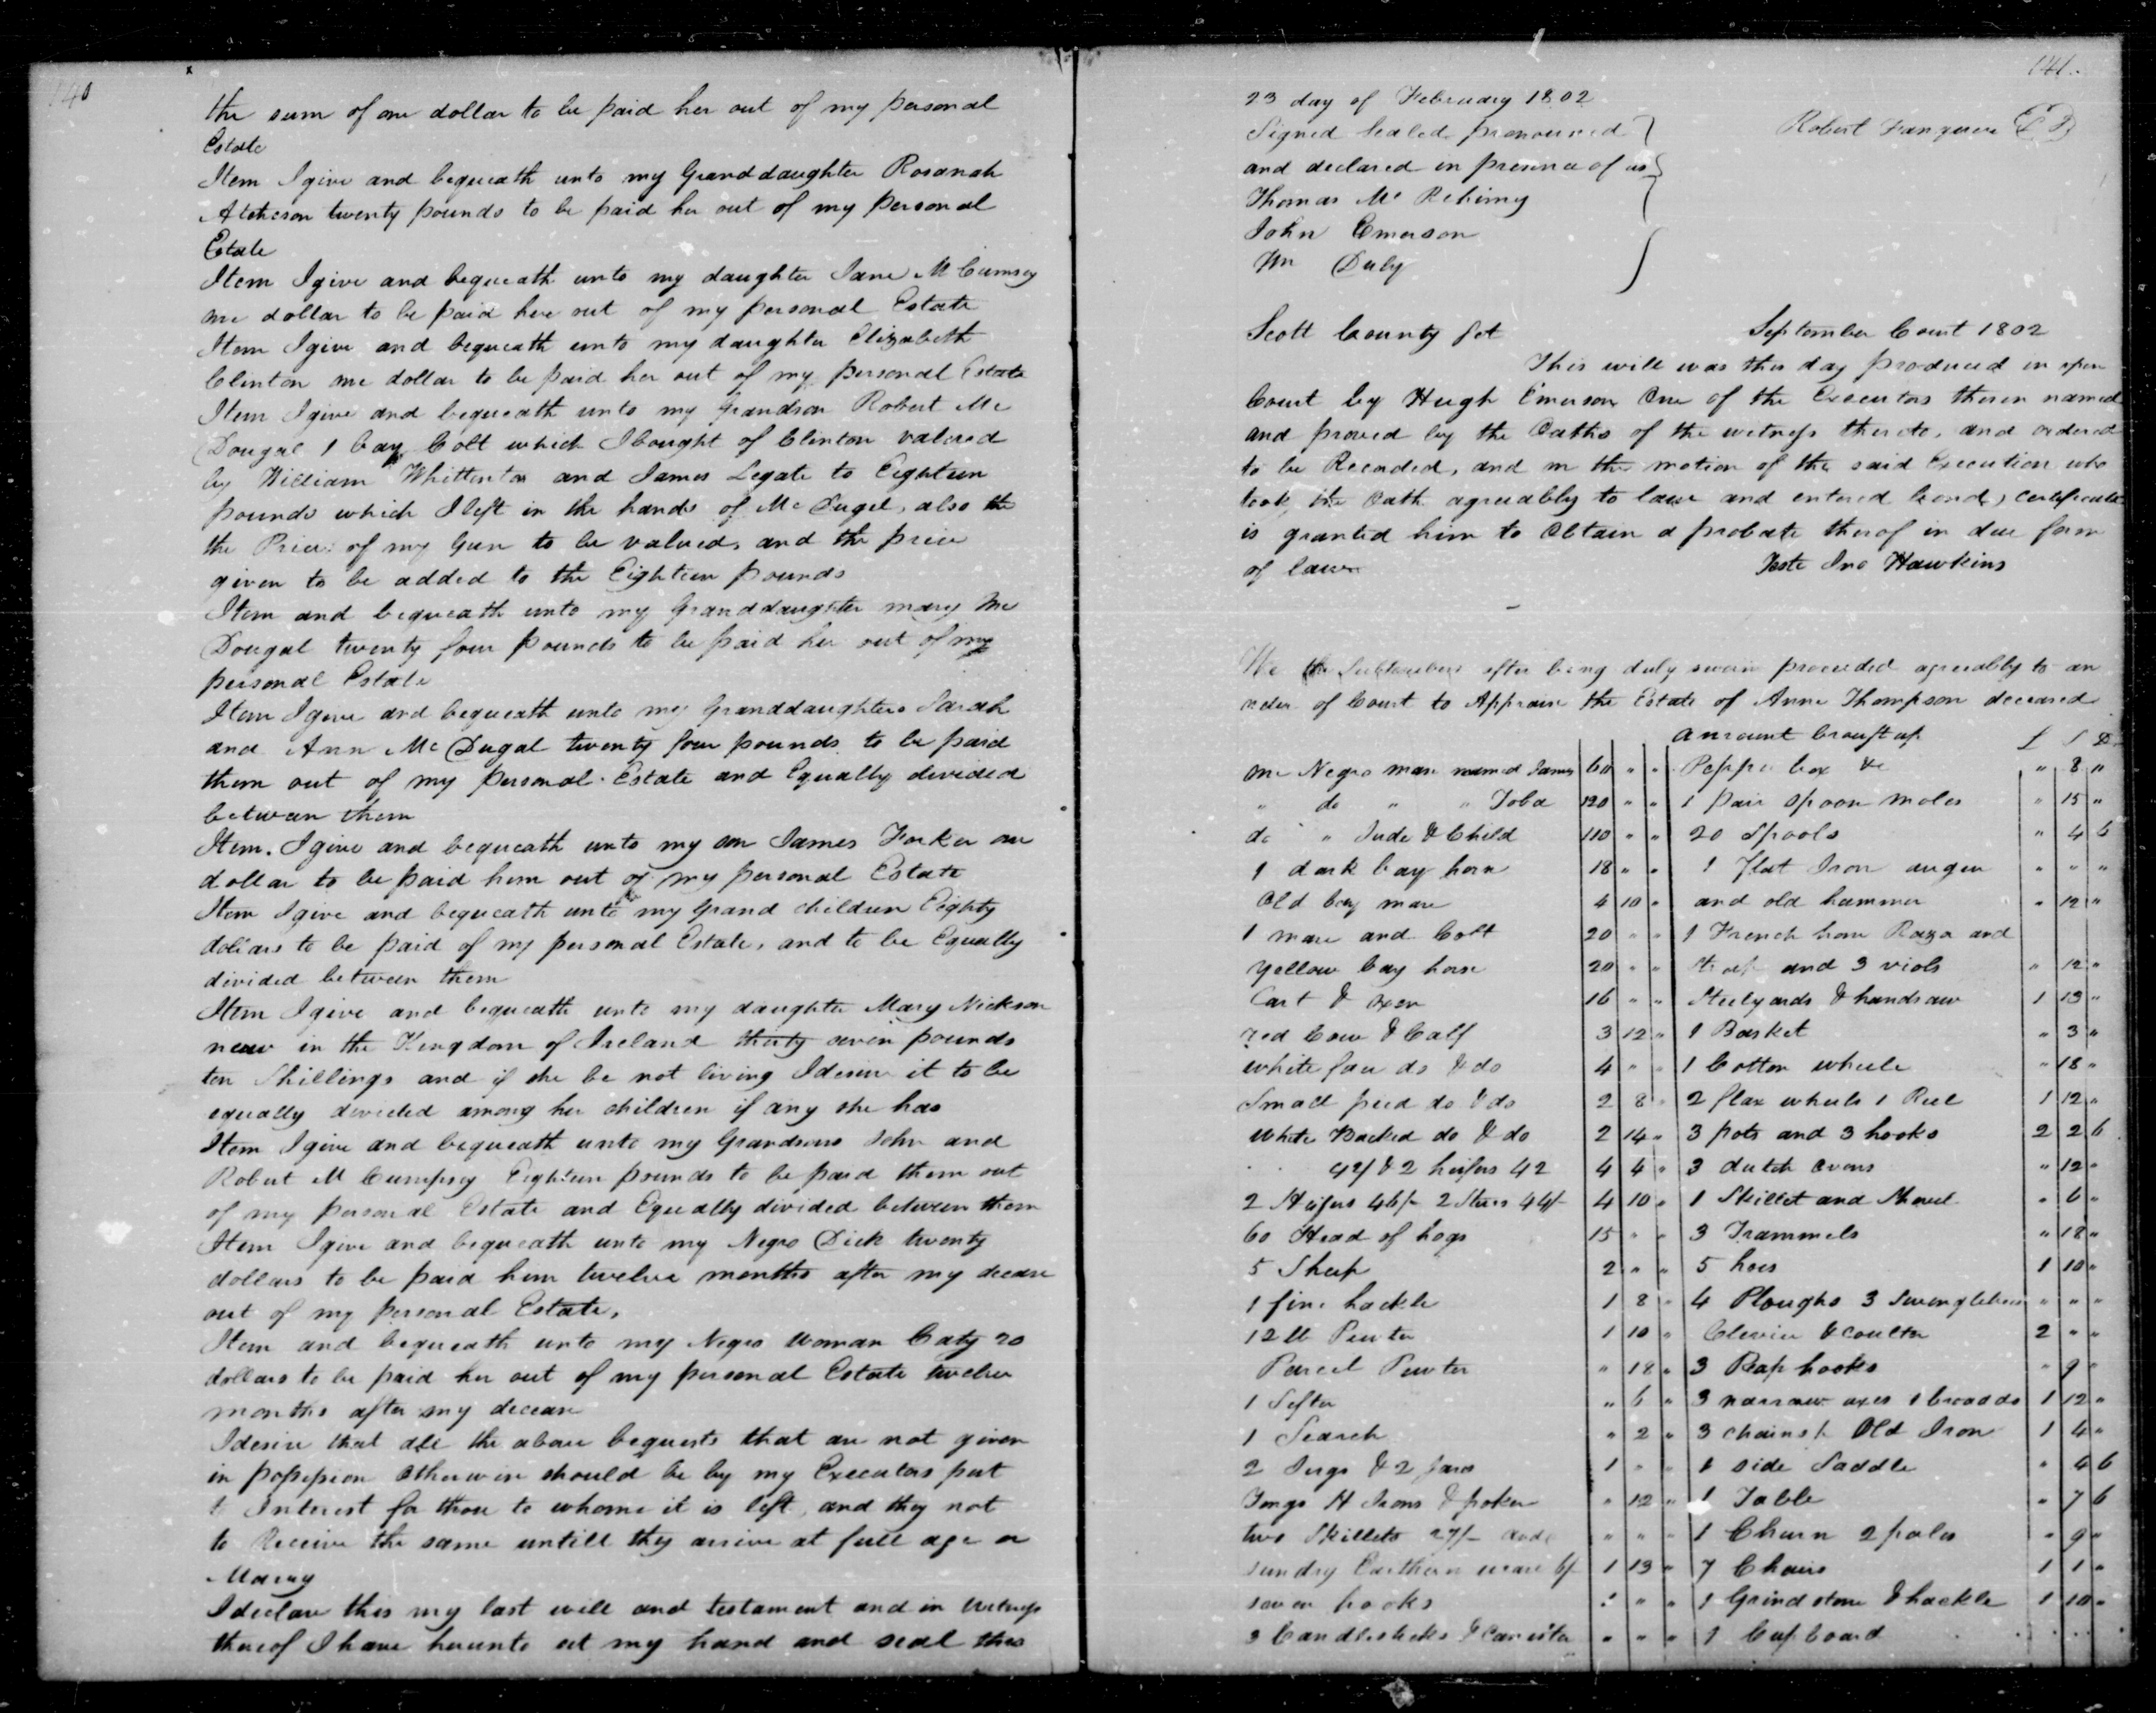 140
the sum of one dollar to be paid her out of my personal
Estate
Item I give and bequeath unto my Granddaughter Rosanah
Atcheson twenty pounds to be paid her out of my personal
Estate
Item I give and bequeath unto my daughter Jane McCumsey
one dollar to be paid here out of my personal Estate
Item I give and bequeath unto my daughter Elizabeth
Clinton one dollar to be paid her out of my personal Estate
Item I give and bequeath unto my grandson Robert Mc
Dougal 1 bay Colt which I bought of Clinton valued
by William Whittenton and James Legate to Eighteen
pounds which I left in the hands of McDugel, also the
the Price of my Gun to be valued, and the price
given to be added to the Eighteen pounds
Item and bequeath unto my Granddaughter mary Mc
Dougal twenty four pounds to be paid her out of my
personal Estate
Item I give and bequeath unto my Granddaughters Sarah
and Ann McDugal twenty four pounds to be paid
them out of my personal Estate and Equally divided
between them
Item. I give and bequeath unto my son James Forker one
dollar to be paid him out of my personal Estate
Item I give and bequeath unto my Grand children Eighty
dollars to be paid of my personal Estate, and to be Equally
divided between them
Item I give and bequeath unto my daughter Mary Nickson
now in the Kingdom of Ireland thirty seven pounds
ten Shillings and if she be not living I desire it to be
equally divided among her children if any she has
Item I give and bequeath unto my Grandsons John and
Robert McCumpsy Eighteen pounds to be paid them out
of my personal Estate and Equally divided between them
Item I give and bequeath unto my Negro Dick twenty
dollars to be paid him twelve months after my decease
out of my personal Estate,
Item and bequeath unto my Negro woman Caty 20
dollars to be paid her out of my personal Estate twelve
months after my decease
I desire that all the above bequests that are not given
in possession otherwise should be by my Executors put
to Interest for those to whome it is left, and they not
to Receive the same untill they arrive at full age or
Marry
I declare this my last will and testament and in witness
thereof I have hereunto set my hand and seal this
141
23 day of February 1802
Signed Sealed pronounced
Robert
and declared in presence of us
Thomas Mc
John Emerson
Wm Duly
Scott County Sct September Court 1802
This will was this day produced in open
Court by Hugh Emerson One of the Executors therein named
and proved by the Oaths of the witness thereto, and ordered
to be Recorded, and on the motion of the said Execution who
took the Oath agreeably to law and entered bond, certificate
is granted him to Obtain a probate thereof in due form
of law Teste Jno Hawkins
We the Subscribers after being duly sworn proceeded agreeably to an
order of Court to Appraise the Estate of Anne Thompson deceased
Amount brought up £ S D
one Negro man named James 60 " " Pepper box &c " 8 "
" do " " Toba 120 " " 1 pair spoon moles " 15 "
do " Jude & Child 110 " " 20 Spools " 4 6
1 dark bay horse 18 " " 1 flat Iron auger " " "
Old bay mare 4 10 " and old hammer " 12 "
1 mare and Colt 20 " " 1 French horn Raza and
yellow bay horse 20 " " strap and 3 viols " 12 "
Cart & oxen 16 " " Steelyards & handsaw 1 13 "
red Cow & Calf 3 12 " 1 Basket " 3 "
white face do & do 4 " " 1 Cotton wheele " 18 "
Small pied do & do 2 8 " 2 flax wheels 1 Reel 1 12 "
White Backed do & do 2 14 " 3 pots and 3 hooks 2 2 6
42/ & 2 heifers 42 4 4 " 3 dutch ovens " 12 "
2 Heifers 46/- 2 Steers 44/- 4 10 " 1 Skillet and Shovel " 6 "
60 Head of hogs 15 " " 3 Trammels " 18 "
5 Sheep 2 " " 5 hoes 1 10 "
1 fine hackle 1 8 " 4 Ploughs 3 Swingletrees " " "
12 lb Pewter 1 10 " Clevice & coulter 2 " "
Parcel Pewter " 18 " 3 Reap hooks " 9 "
1 Sifter " 6 " 3 narrow axes 1 broad do 1 12 "
1 Search " 2 " 3 chains & Old Iron 1 4 "
2 Jugs & 2 jars 1 " " 1 side Saddle " 4 6
Tongs H Irons & poker " 12 " 1 Table " 7 6
two Skillets 27/- " " " 1 Churn 2 pales " 9 "
sundry Earthern ware 6/- 1 13 " 7 Chairs 1 1 "
seven books " " " 1 Grindstone & hackle 1 10 "
3 Candlesticks & Canister " " " 1 Cupboard